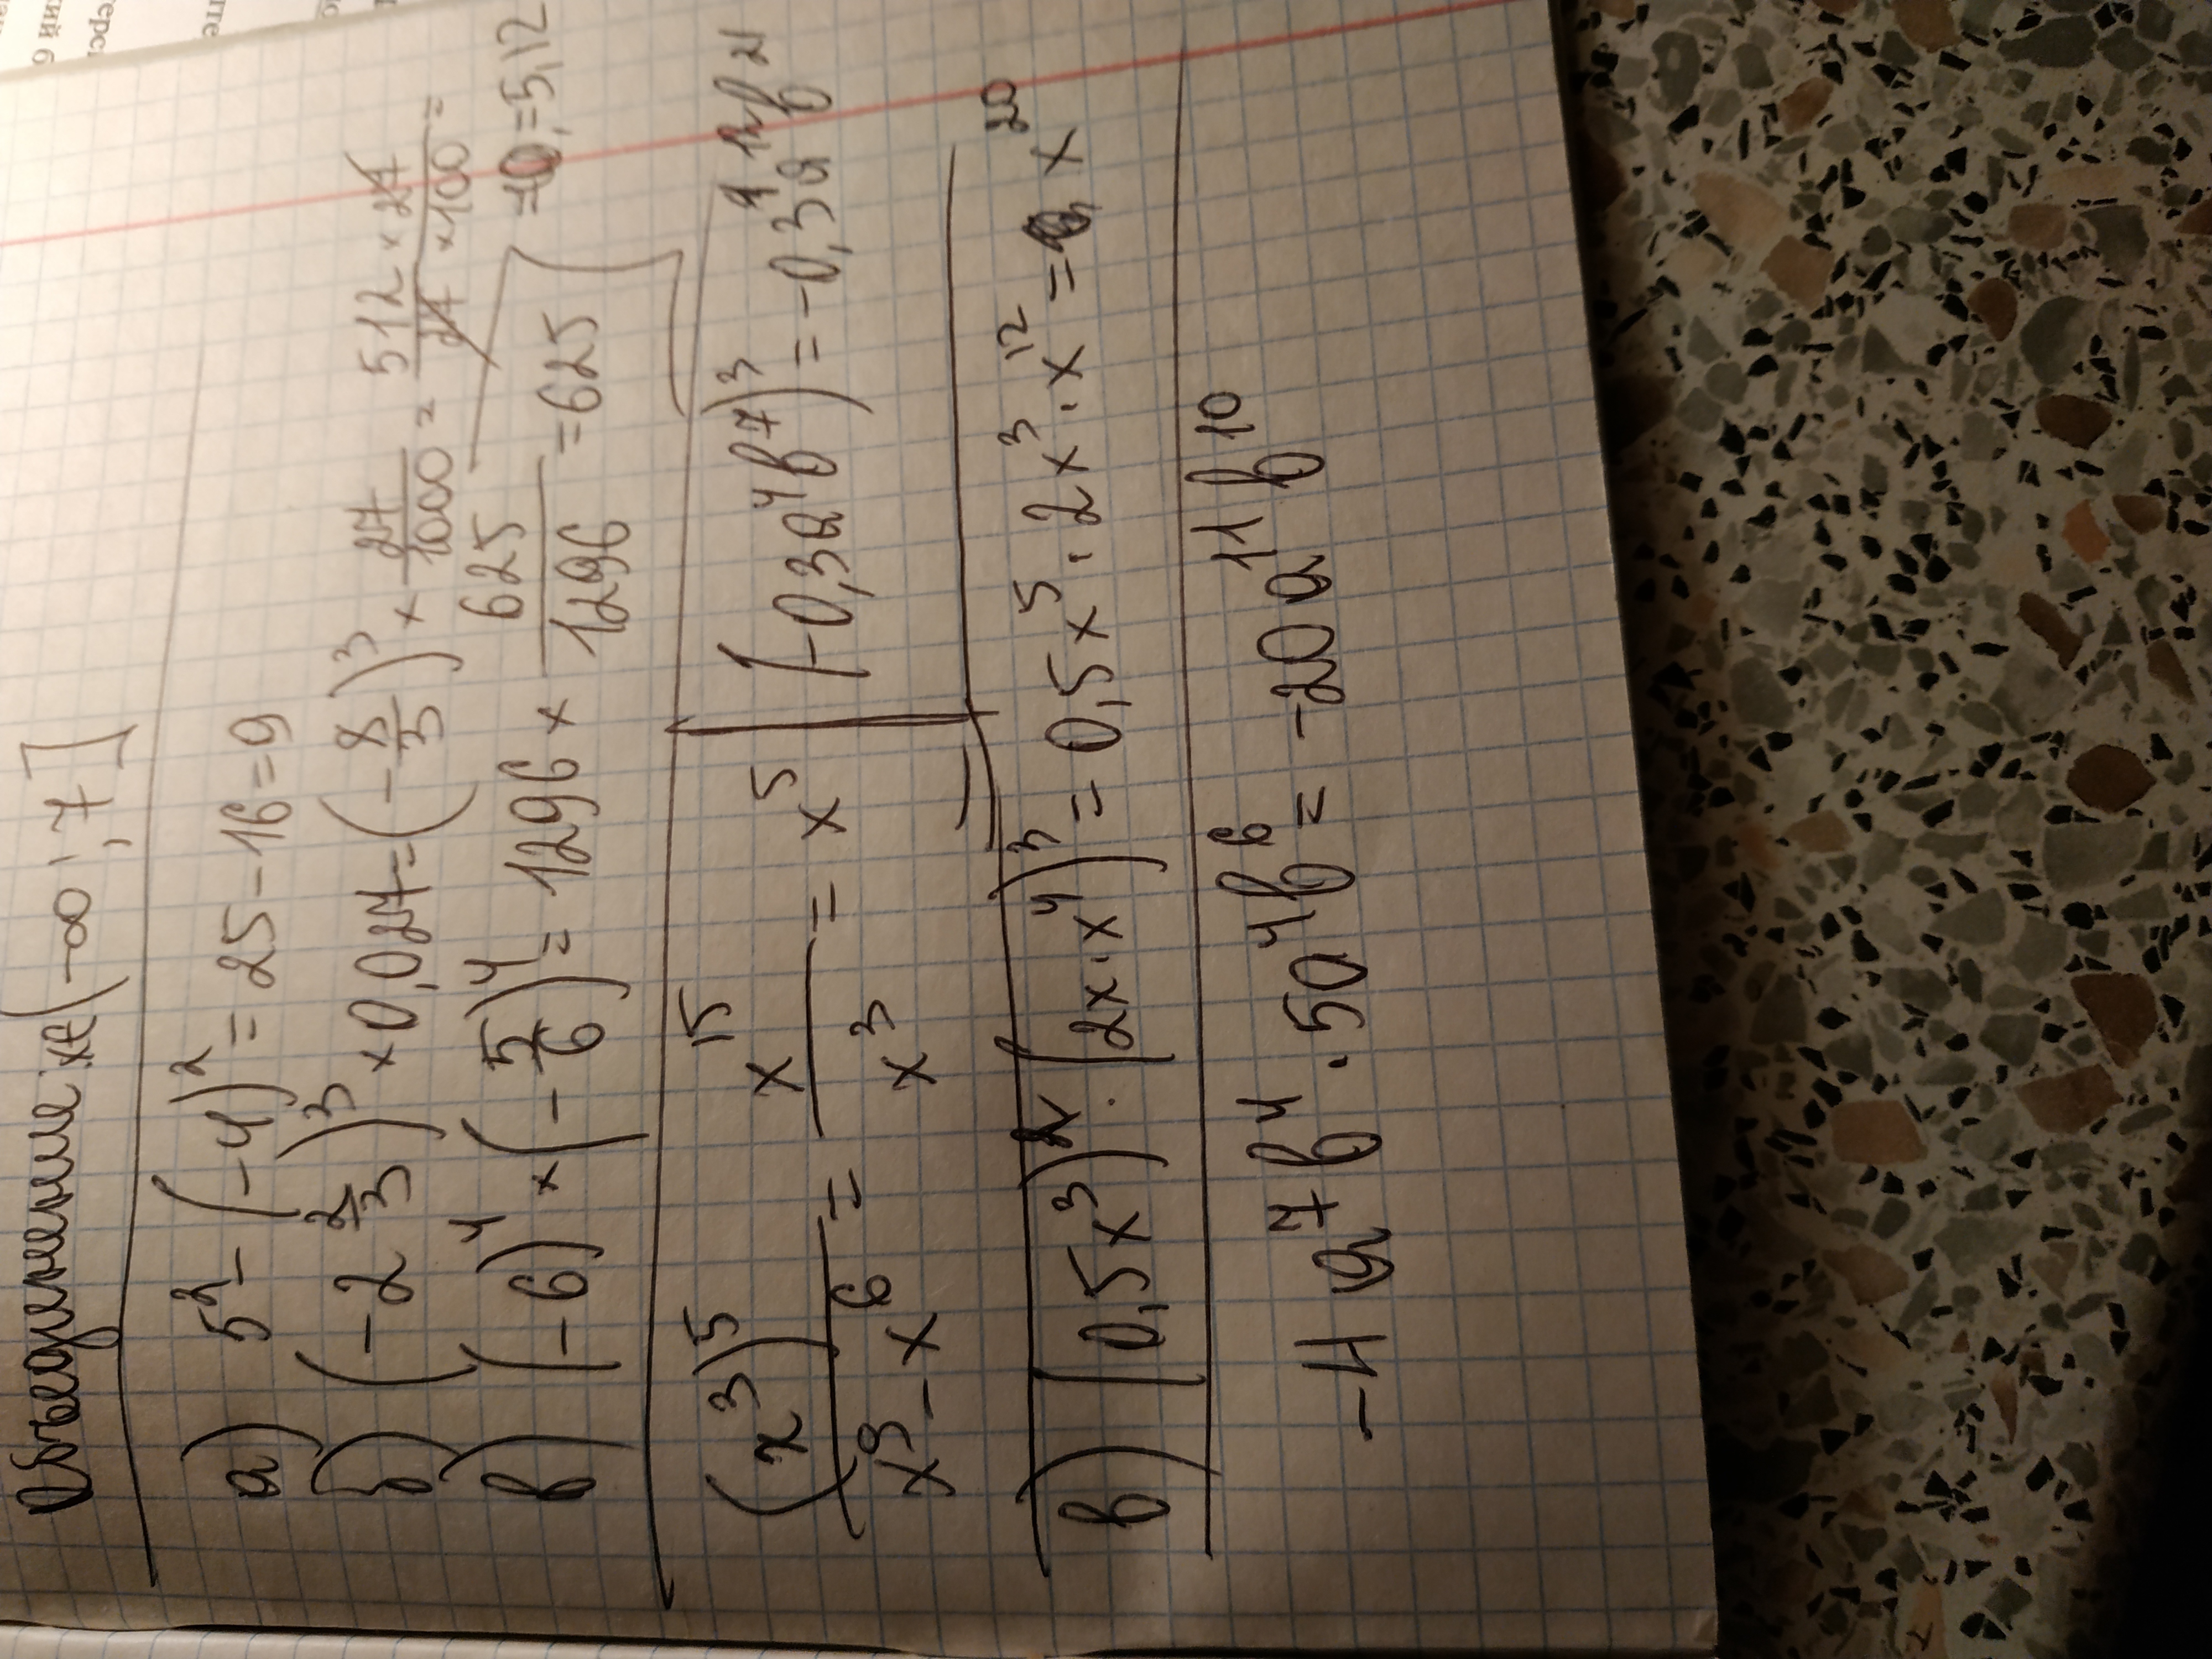 Объединение: x∈(-∞; 7]
а) 5² - (-4)² = 25 - 16 = 9
б) (-2 2/3)³ × 0,027 = (-8/3)³ × 27/1000 = 512 × 27 / 27 × 100 =
= 5,12
в) (-6)⁴ × (-5/6)⁴ = 1296 × 625/1296 = 625
(x³)⁵ / x⁹ - x⁶ = x¹⁵ / x³ = x⁵
(-0,3a⁴b⁷)³ = -0,3a b²¹
в) (0,5x³) · (2x·x⁴)³ = 0,5x⁵ · 2x³ · x¹² = x²⁰
-4a⁷b⁴ · 5a⁴b⁶ = -20a¹¹b¹⁰